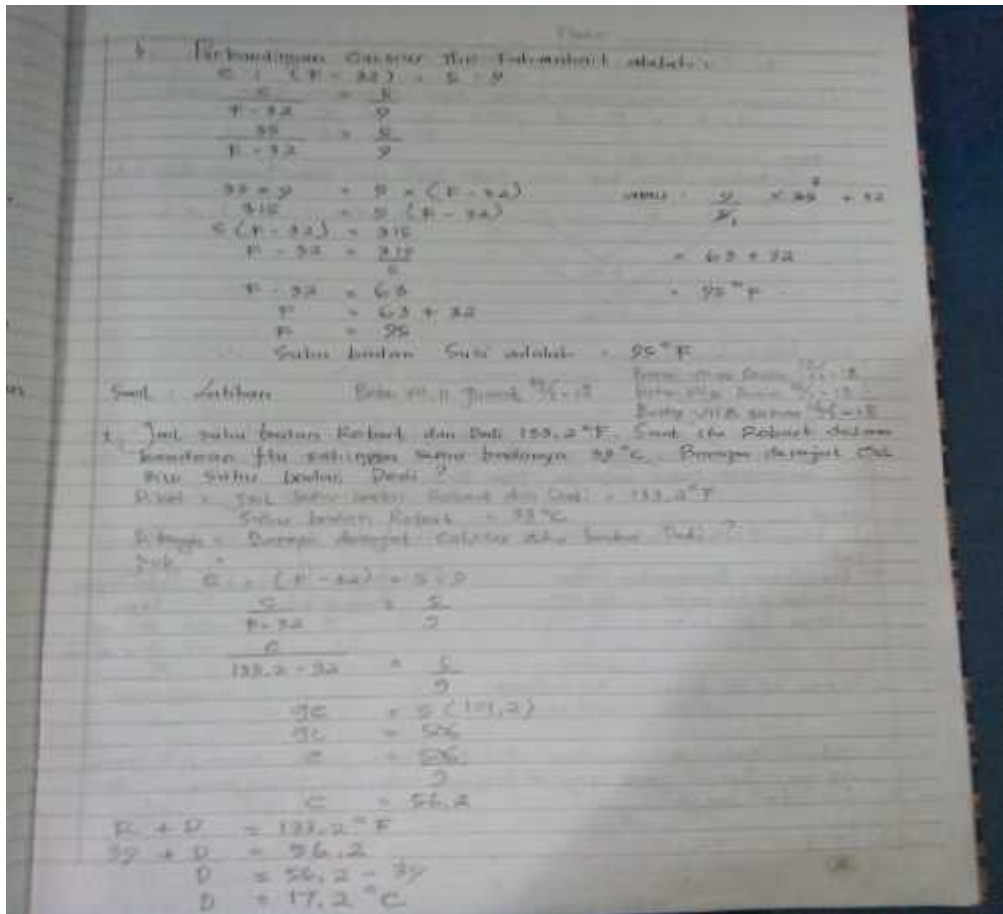 b. Perbandingan Celsius dan Fahrenheit adalah :
C : (F - 32) = 5 : 9
C / F - 32 = 5 / 9
35 / F - 32 = 5 / 9
35 × 9 = 5 × (F - 32) atau : 9/5 × 35 + 32
315 = 5 (F - 32)
5 (F - 32) = 315
F - 32 = 315 / 5 = 63 + 32
F - 32 = 63 = 95 °F
F = 63 + 32
F = 95
Suhu badan Susi adalah = 95 °F
Soal : Latihan
1. Jml suhu badan Robert dan Dedi 133,2 °F. Saat itu Robert dalam
keadaan flu sehingga suhu badannya 39 °C. Berapa derajat Cel
sius suhu badan Dedi ?
Diket = Jml suhu badan Robert dan Dedi = 133,2 °F
Suhu badan Robert = 39 °C
Ditanya = Berapa derajat Celsius suhu badan Dedi ?
Jwb =
C : (F - 32) = 5 : 9
C / F - 32 = 5 / 9
C / 133,2 - 32 = 5 / 9
9C = 5 (101,2)
9C = 506
C = 506 / 9
C = 56,2
R + D = 133,2 °F
39 + D = 56,2
D = 56,2 - 39
D = 17,2 °C